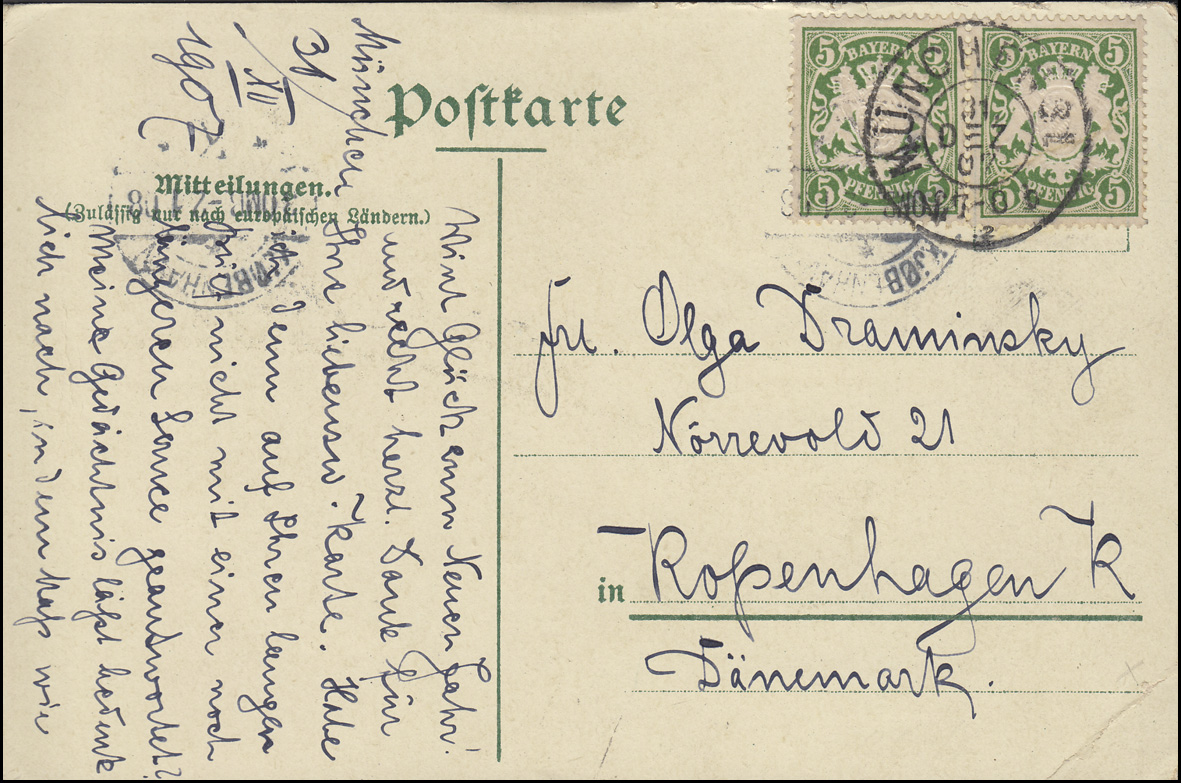 Postkarte
Mitteilungen.
(Zulässig nur nach europäischen Ländern.)
München
31
XII
1907
Glück zum Neuen Jahr!
und recht herzl. Dank für
Ihre liebensw. Karte. Habe
ich denn auf Ihren langen
Brief nicht mit einer noch
längeren Sauce geantwortet?
Meine Gedächtnis läßt bedenk
lich nach, wie
5 BAYERN 5
5 PFENNIG 5
5 BAYERN 5
5 PFENNIG 5
MÜNCHEN
31
DEZ
07
KJØBENHAVN
Frl. Olga Draminsky
Nörrevold 21
in Kopenhagen K
Dänemark.